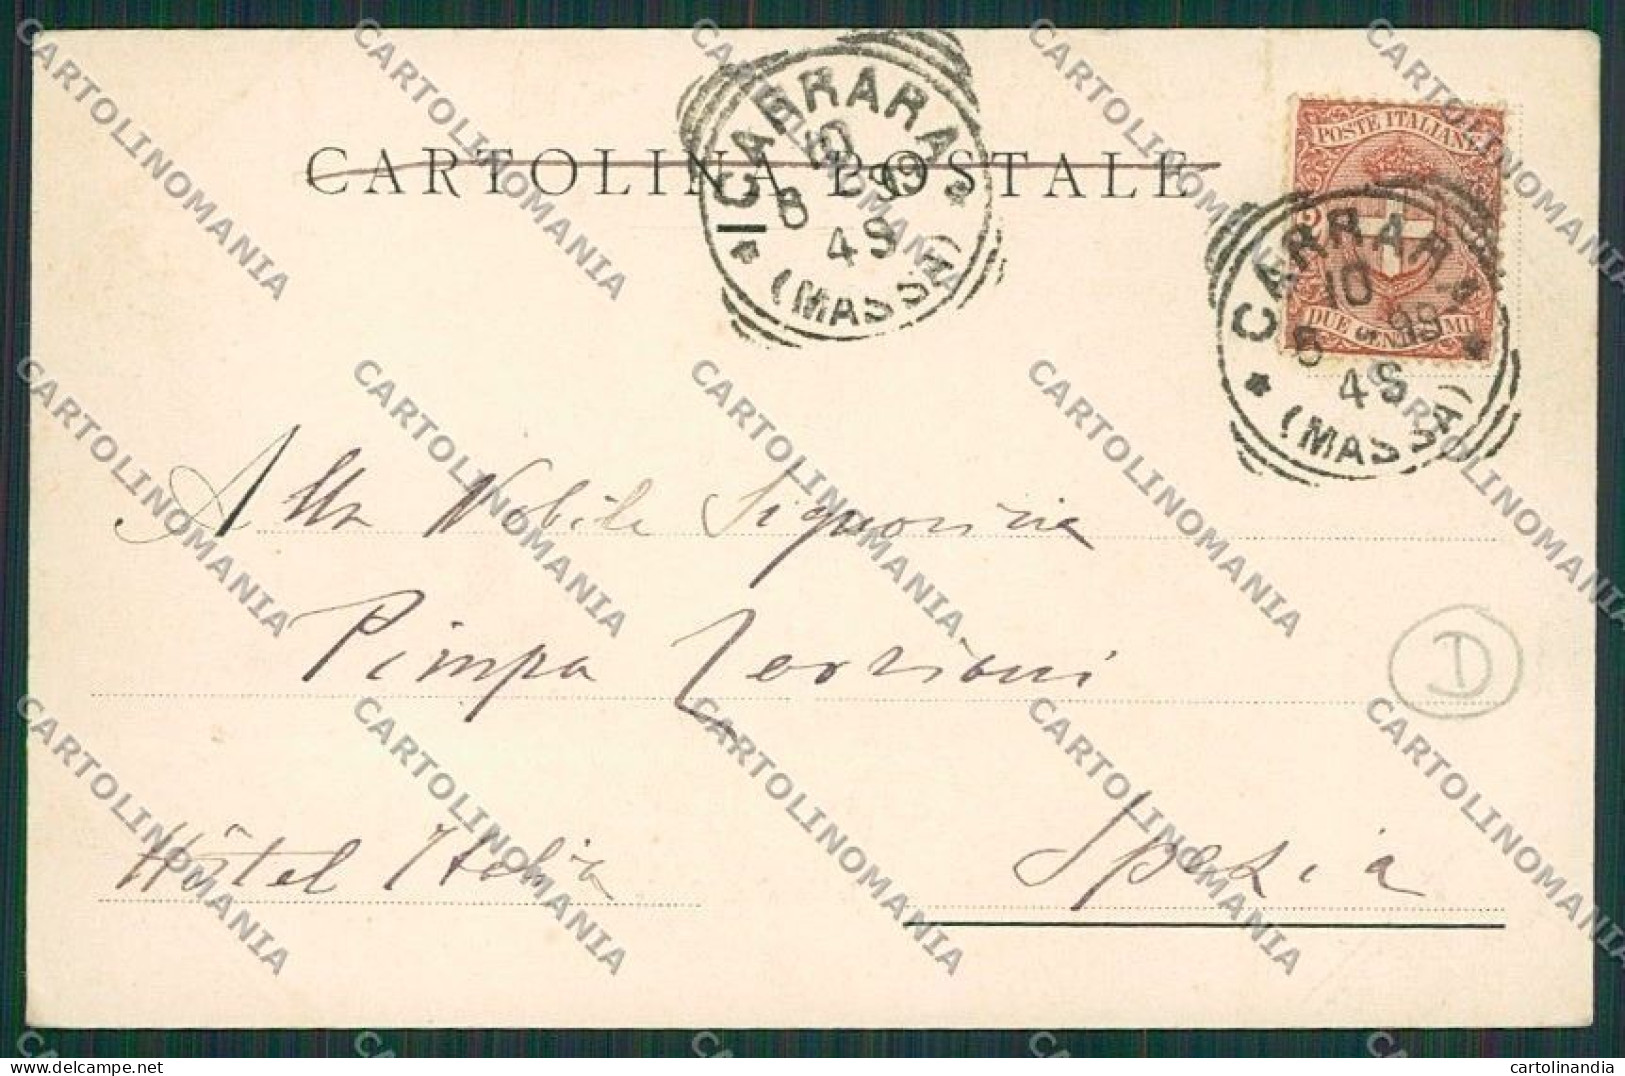 CARTOLINA POSTALE
CARRARA
10
8 99
4S
(MASSA)
POSTE ITALIANE
DUE CENTESIMI
CARRARA
10
8 99
4S
(MASSA)
Alla Nobile Signorina
Pimpa
D
Hôtel Italia
Spezia
CARTOLINOMANIA
cartolinandia